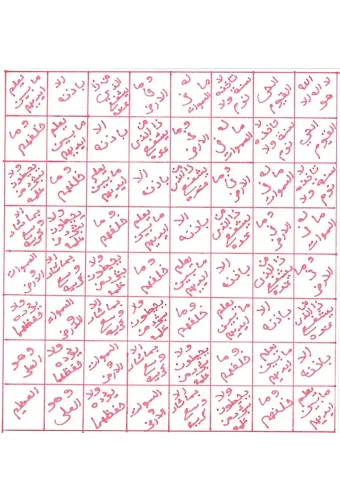 الله لا اله الا هو الحي القيوم لا تاخذه سنة ولا نوم له ما في السموات وما في الارض من ذا الذي يشفع عنده الا باذنه يعلم ما بين ايديهم
الحي القيوم لا تاخذه سنة ولا نوم له ما في السموات وما في الارض من ذا الذي يشفع عنده الا باذنه يعلم ما بين ايديهم وما خلفهم
لا تاخذه سنة ولا نوم له ما في السموات وما في الارض من ذا الذي يشفع عنده الا باذنه يعلم ما بين ايديهم وما خلفهم ولا يحيطون بشئ من علمه
له ما في السموات وما في الارض من ذا الذي يشفع عنده الا باذنه يعلم ما بين ايديهم وما خلفهم ولا يحيطون بشئ من علمه الا بما شاء وسع كرسيه
وما في الارض من ذا الذي يشفع عنده الا باذنه يعلم ما بين ايديهم وما خلفهم ولا يحيطون بشئ من علمه الا بما شاء وسع كرسيه السموات والارض
من ذا الذي يشفع عنده الا باذنه يعلم ما بين ايديهم وما خلفهم ولا يحيطون بشئ من علمه الا بما شاء وسع كرسيه السموات والارض ولا يؤده حفظهما
الا باذنه يعلم ما بين ايديهم وما خلفهم ولا يحيطون بشئ من علمه الا بما شاء وسع كرسيه السموات والارض ولا يؤده حفظهما وهو العلي
يعلم ما بين ايديهم وما خلفهم ولا يحيطون بشئ من علمه الا بما شاء وسع كرسيه السموات والارض ولا يؤده حفظهما وهو العلي العظيم